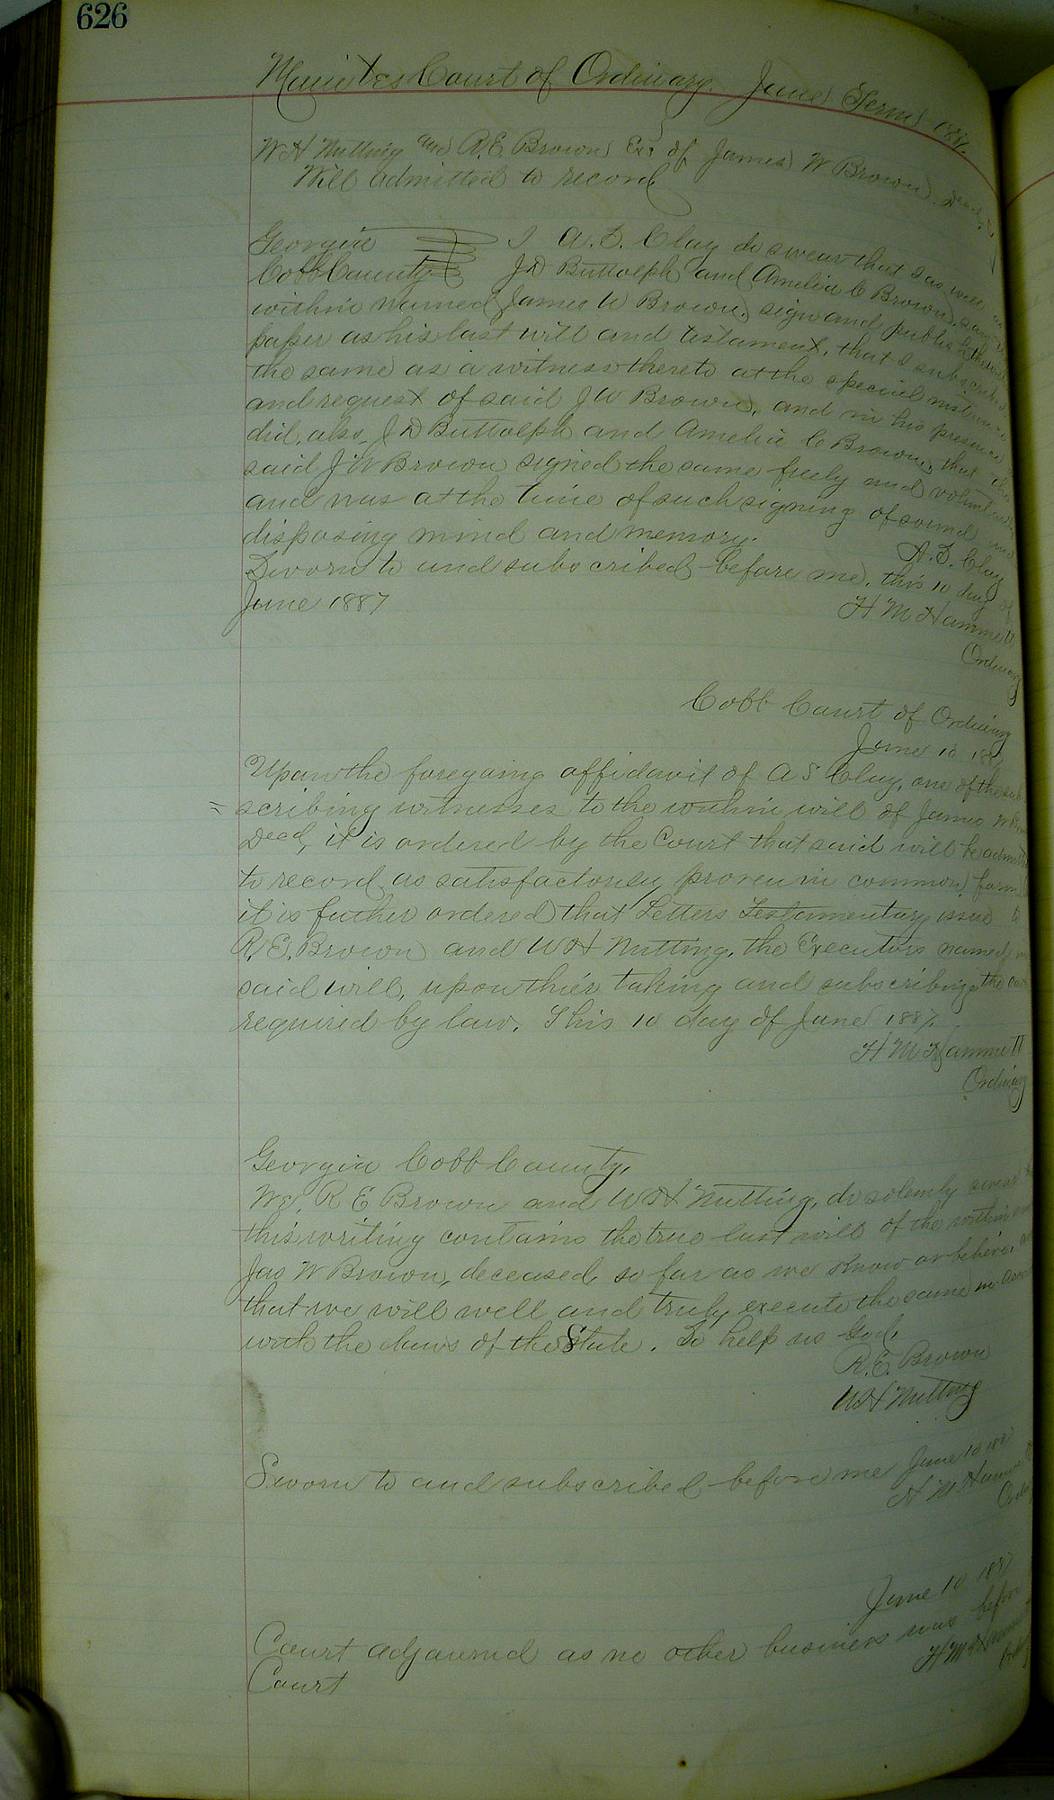 626
Minutes Court of Ordinary. June Term 1887.
W H Nutting and R. E. Brown Exrs of James W Brown Decd.
Will admitted to record
Georgia I A. S. Clay do swear that I as well as
Cobb County J D Buttolph and Amelia C Brown, saw
within named James W Brown, sign and publish
paper as his last will and testament, that I subscribed
the same as a witness thereto at the special instance
and request of said J W Brown, and in his presence
did also J D Buttolph and Amelia C Brown, that
said J W Brown signed the same freely and voluntarily
and was at the time of such signing of sound and
disposing mind and memory.
A. S. Clay
Sworn to and subscribed before me, this 10 day of
June 1887
H M Hammett
Ordinary
Cobb Court of Ordinary
June 10 1887
Upon the foregoing affidavit of A S Clay, one of the sub
= scribing witnesses to the within will of James W Brown
Decd, it is ordered by the Court that said will be admitted
to record as satisfactorily proven in common form
it is futher ordered that Letters Testamentary issue to
R. E. Brown and W H Nutting, the Executors named in
said will, upon thier taking and subscribing the oath
required by law. This 10 day of June 1887.
H M Hammett
Ordinary
Georgia Cobb County,
We, R E Brown and W H Nutting, do solemly swear
this writing contains the true last will of the within
Jas W Brown, deceased, so far as we know or believe,
that we will well and truly execute the same in
with the laws of the State. So help us God.
R. E. Brown
W H Nutting
Sworn to and subscribed before me June 10 1887
H M Hammett
June 10 1887
Court adjourned as no other business was before
Court
H M Hammett